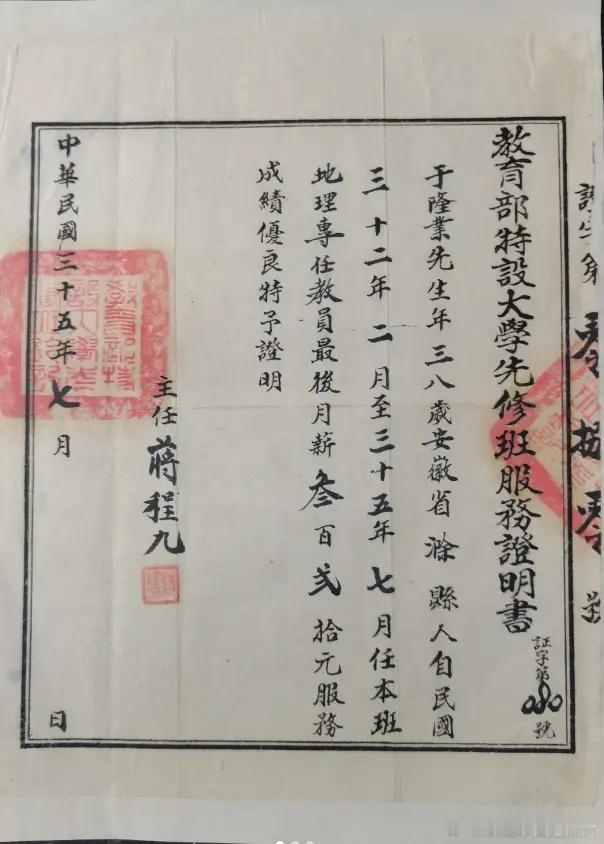 證字第零捌零號
教育部特設大學先修班服務證明書
証字第080號
于隆業先生年三八歲安徽省滁縣人自民國
三十二年二月至三十五年七月任本班
地理專任教員最後月薪叁百弍拾元服務
成績優良特予證明
主任蔣程九
中華民國三十五年七月日